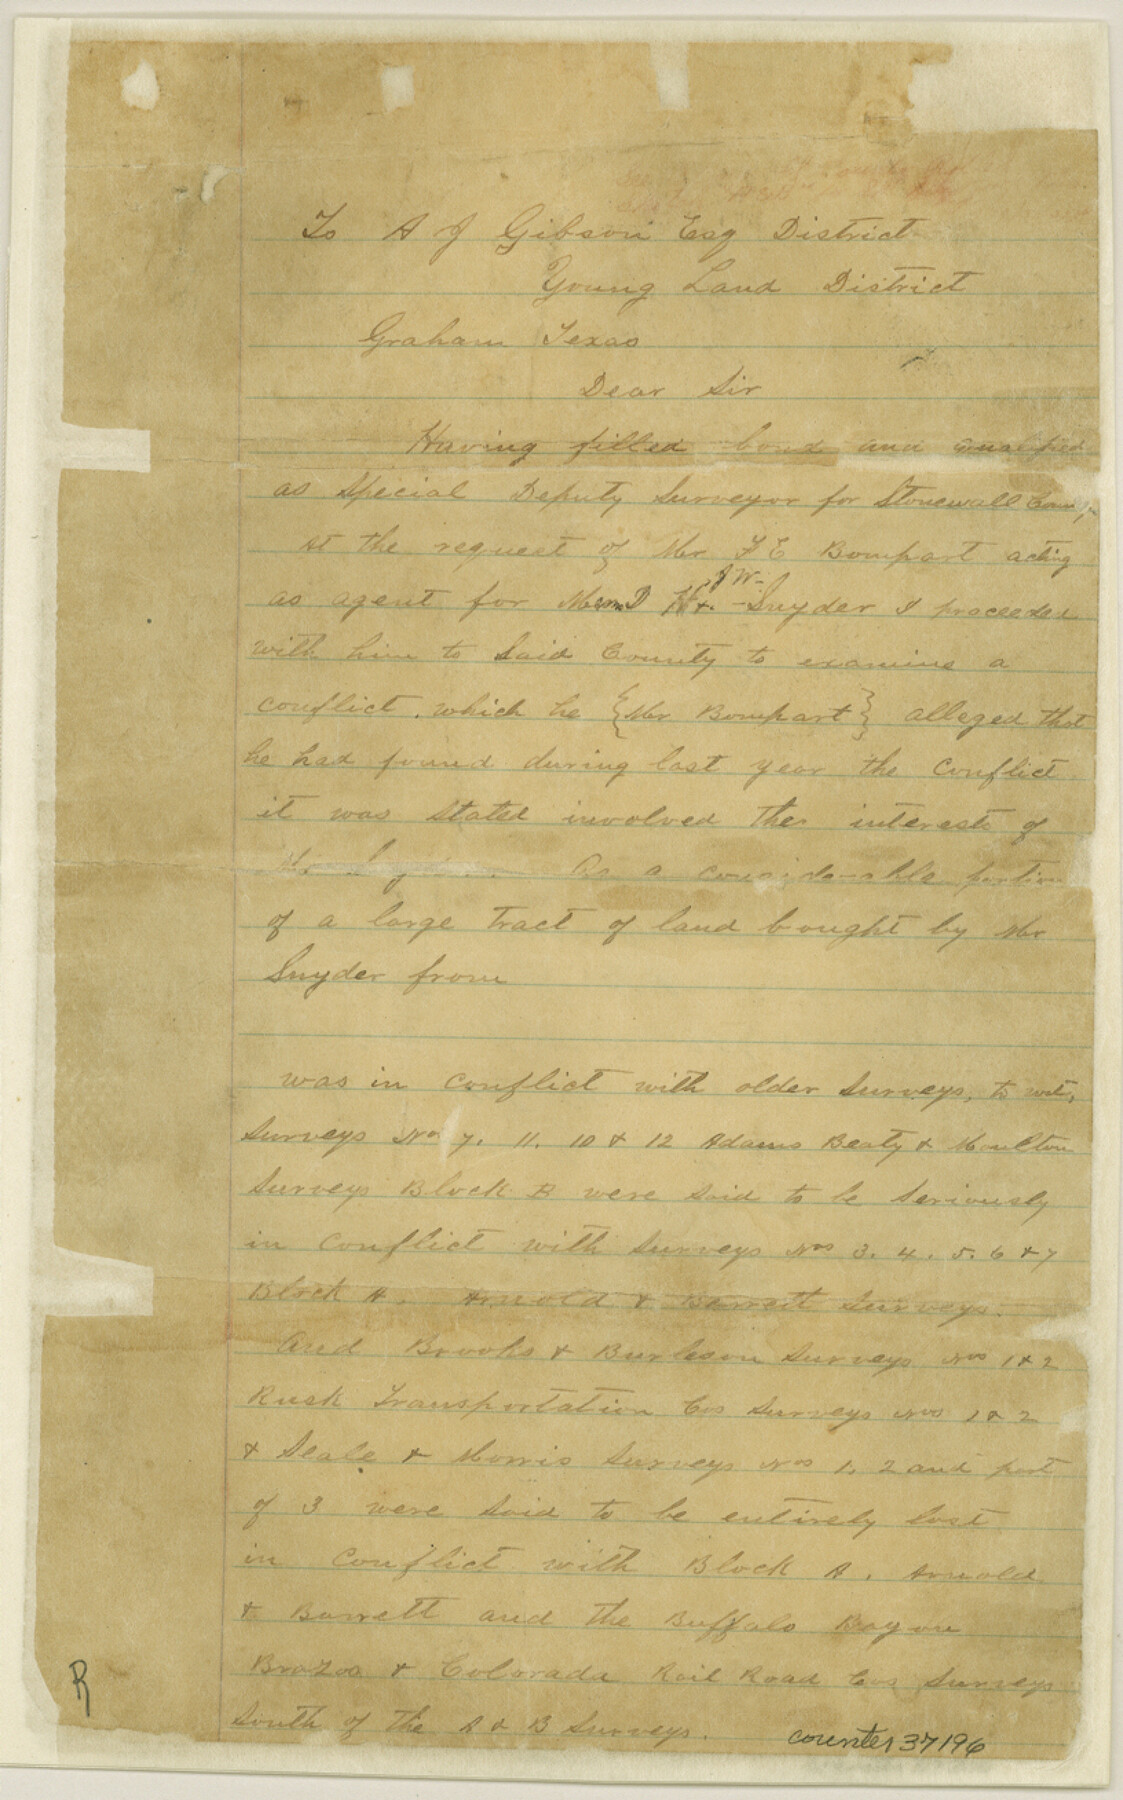 To A J Gibson Esq District
Young Land District
Graham Texas
Dear Sir
Having filled bond and qualified
as Special Deputy Surveyor for Stonewall
at the request of Mr F E Bompart acting
J W
as agent for D H & Snyder I proceeded
with him to Said County to examine a
conflict. which he {Mr Bompart} alleged that
he had found during last year the Conflict
it was Stated involved the interests of
Mr As a considerable portion
of a large tract of land bought by Mr
Snyder from
was in conflict with older Surveys, to wit,
Surveys Nos 7. 11. 10 & 12 Adams Beaty & Moulton
Surveys Block B were Said to be Seriously
in Conflict with Surveys Nos 3. 4. 5. 6 & 7
Block A. Arnold & Barrett Surveys.
And Brooks & Burleson Surveys Nos 1 & 2
Rusk Transportation Cos Surveys Nos 1 & 2
& Seale & Morris Surveys Nos 1, 2 and part
of 3 were Said to be entirely lost
in Conflict with Block A. Arnold
& Barrett and the Buffalo Bayou
Brazos & Colorada Rail Road Cos Surveys
South of the A & B Surveys.
R
counter 37196